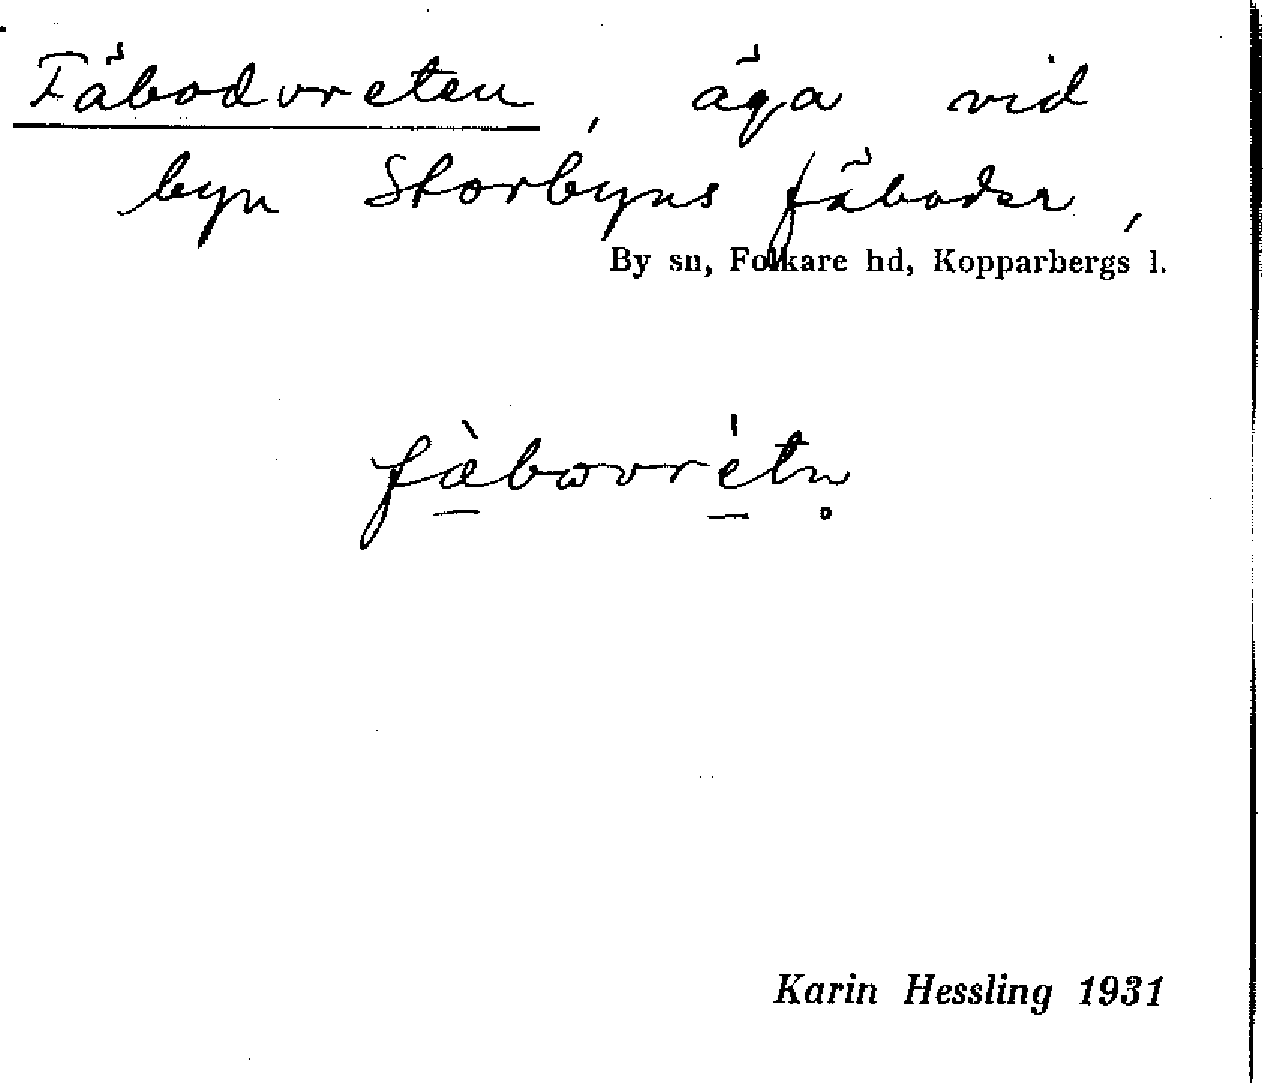 Fäbodvreten, äga vid
byn Storbyns fäboder,
By sn, Folkare hd, Kopparbergs l.
fæ̀bωvrétn̥
Karin Hessling 1931